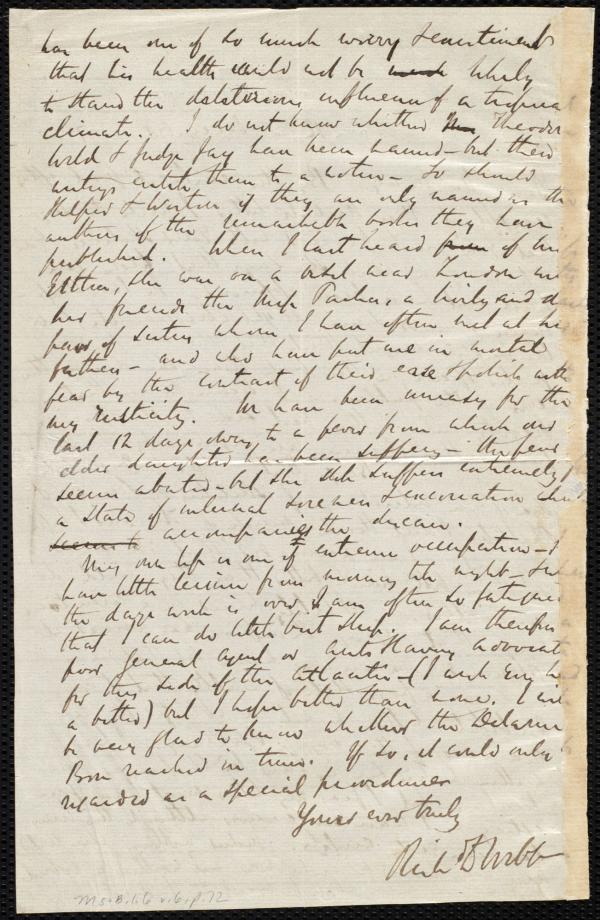 has been one of so much worry & excitement
that his health would not be much likely
to stand the deleterious influence of a tropical
climate. I do not know whether Theodore
Weld & Judge Jay have been named - but their
writings entitle them to a notice - So should
Helper & if they are only named as the
authors of the remarkable books they have
published. When I last heard from of
Esther, she was on a visit near London
her friends the Miss a lively and
pair of sisters whom I have often met at her
father's - and who have put me in mortal
fear by the contrast of their ease & polish with
my rusticity. We have been uneasy for the
last 12 days owing to a fever from which our
elder daughter has been suffering - the fever
seems abated - but she still suffers extremely
a state of internal soreness & excoriation which
seems to accompanies the disease.
My own life is one of extreme occupation - I
have little leisure from morning till night - & when
the days work is over I am often so fatigued
that I can do little but sleep. I am therefore a
poor general agent or Anti Slavery advocate
for this side of the Atlantic - (I wish they had
a better) but I hope better than none. I will
be very glad to know whether the Delarue
Box reached in time. If so, it could only be
regarded as a special providence
Yours ever truly
Rich D Webb
Ms.B.1.6 v.6, p.72